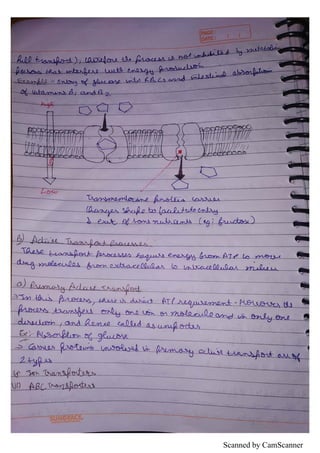 PAGE:
DATE: / /
hill transport); therefore the process is not inhibited by metabolic
poisons that interfere with energy production
Example - Entry of glucose into RBCs and intestinal absorption
of vitamins B1 and B2
high
Low
Transmembrane protein carrier
Changes shape to facilitate entry
& exit of some nutrients (eg: fructose)
B) Active Transport processes:
These transport processes require energy from ATP to move
drug molecules from extracellular to intracellular milieu
a) Primary Active transport
→ In this process, there is direct ATP requirement. Moreover the
process transfers only one ion or molecule and in only one
direction, and hence called as uniporter
Ex: Absorption of glucose
→ Carrier proteins involved in primary active transport are of
2 types
i) Ion Transporters
ii) ABC Transporters
SUNDARAM
Scanned by CamScanner